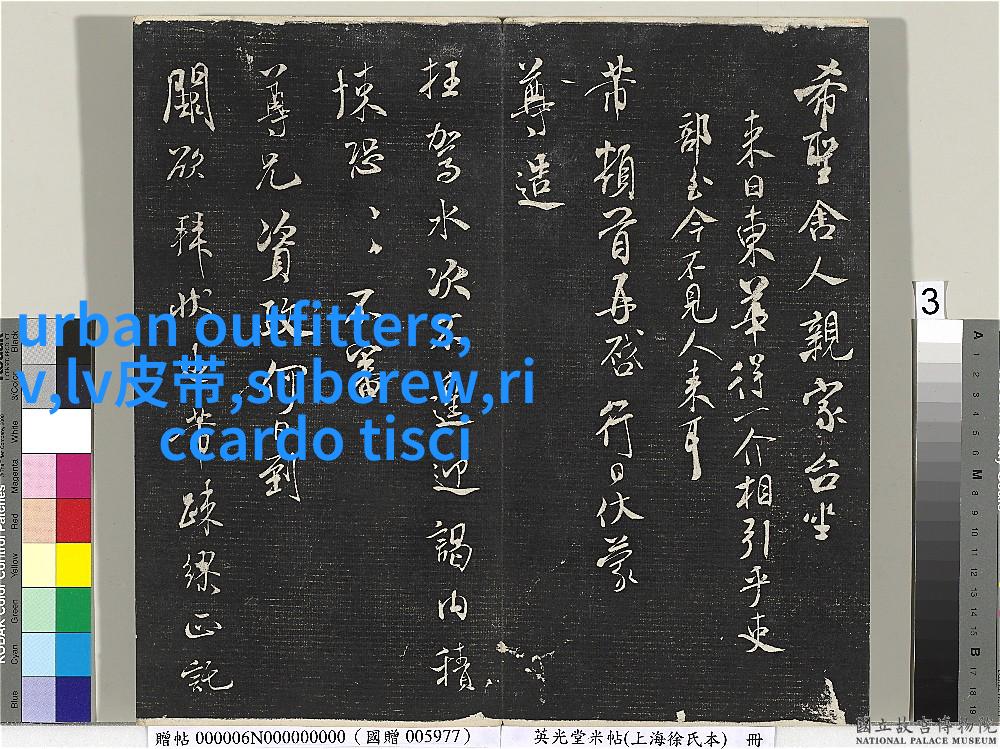 希聖舍人親家台坐
来日東華得一介相引乎吏
部至今不見人来耳
芾頓首再啓行日伏蒙
尊造
枉駕水次
迎謁内積
悚恐
不審
尊兄資政何日到
闕欲拜状
疎繆正託
urban outfitters,
v,lv皮带,subcrew,ri
ccardo tisci
3
KODAK Color Control Patches
Blue Cyan Green Yellow Red Magenta White 3/Color Black
A 1 2 3 4 5 6 M 8 9 10 11 12 13 14 15 B 17 18 19
贈帖 000006N000000000 (國贈 005977)
英光堂米帖(上海徐氏本) 冊
國立故宮博物院
NATIONAL PALACE MUSEUM